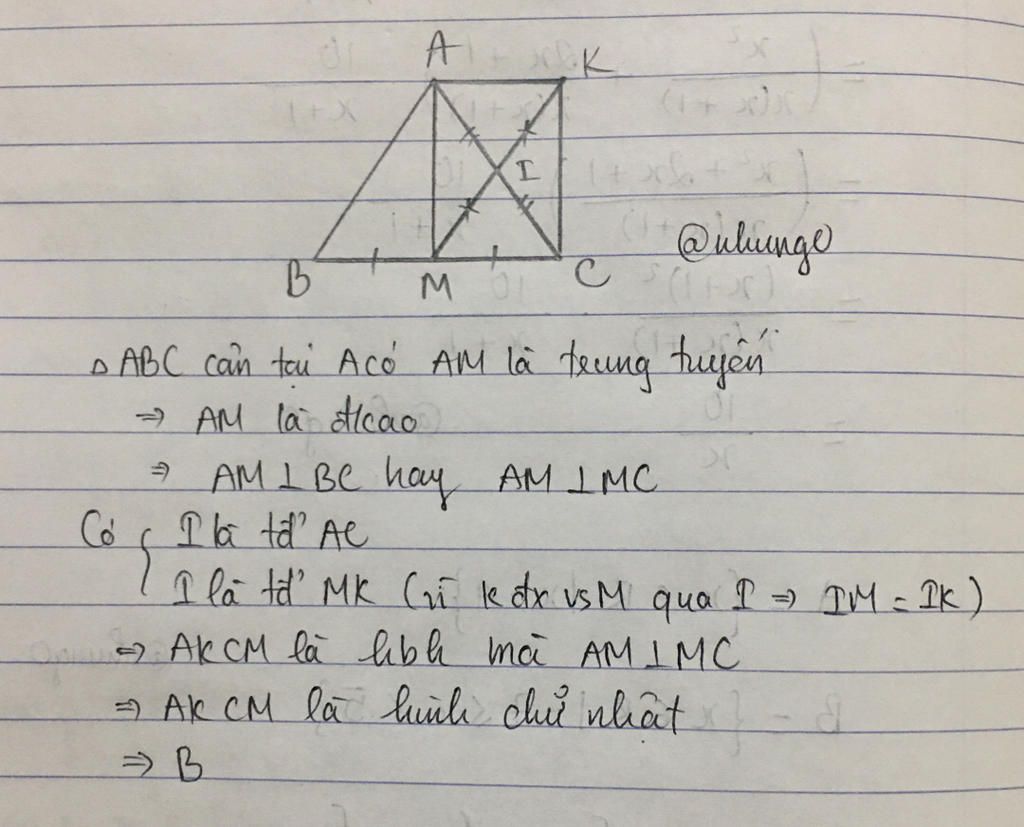 A K
I
B M C @nhunge
△ABC cân tại A có AM là trung tuyến
⇒ AM là đ/cao
⇒ AM ⊥ BC hay AM ⊥ MC
Có { I là tđ' AC
I là tđ' MK (vì K đx vs M qua I ⇒ IM = IK)
⇒ AKCM là hbh mà AM ⊥ MC
⇒ AKCM là hình chữ nhật
⇒ B